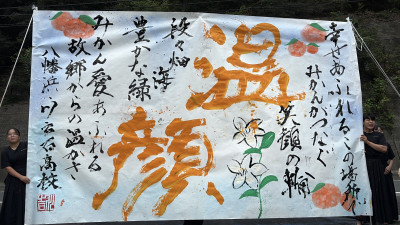 幸せあふれるこの場所で
みかんがつなぐ
笑顔の輪
温顔
段々畑 海
豊かな緑
みかん愛あふれる
故郷からの温かさ
八幡浜
高校